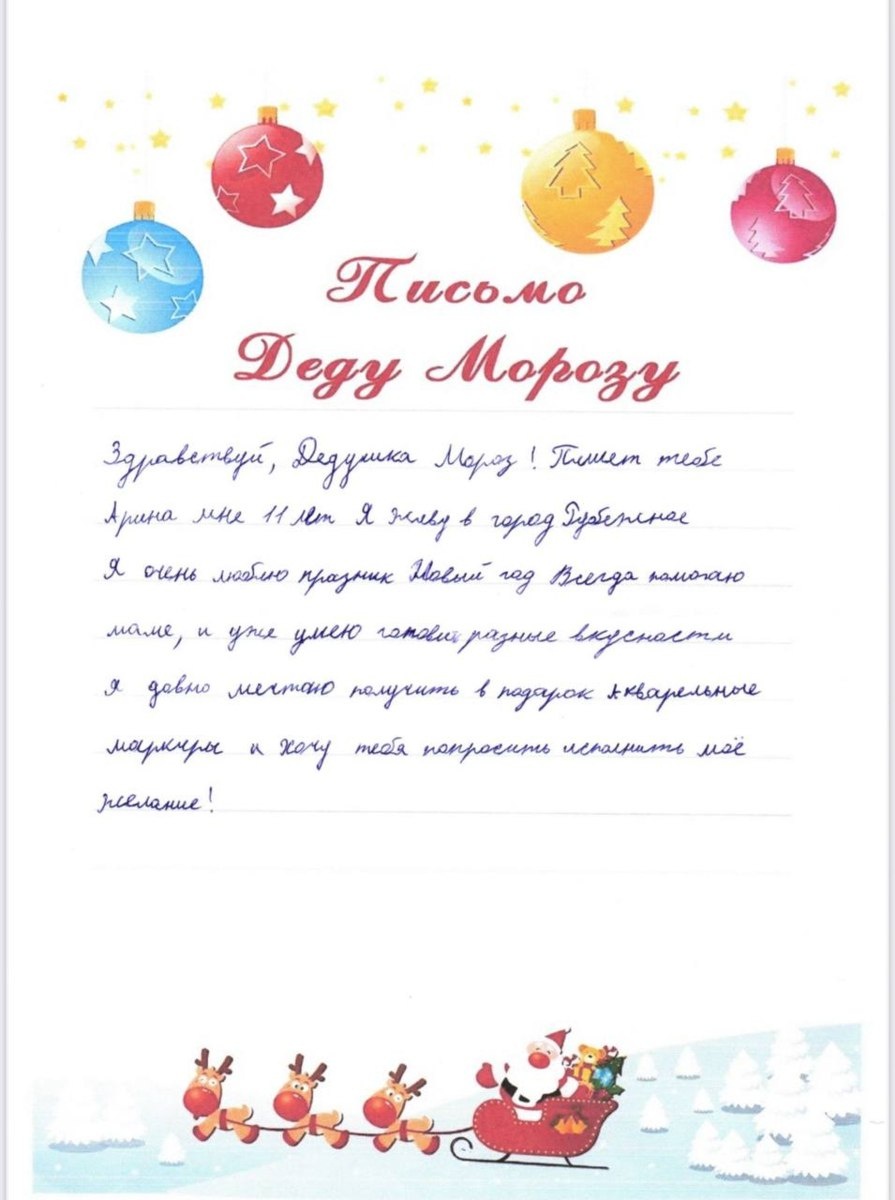 Письмо
Деду Морозу
Здравствуй, Дедушка Мороз! Пишет тебе
Арина мне 11 лет Я живу в город Рубежное
Я очень люблю празник Новый год Всегда помогаю
маме, и уже умею готовить разные вкусности
я давно мечтаю получить в подарок Акварельные
маркиры и хочу тебя попросить исполнить моё
желание!